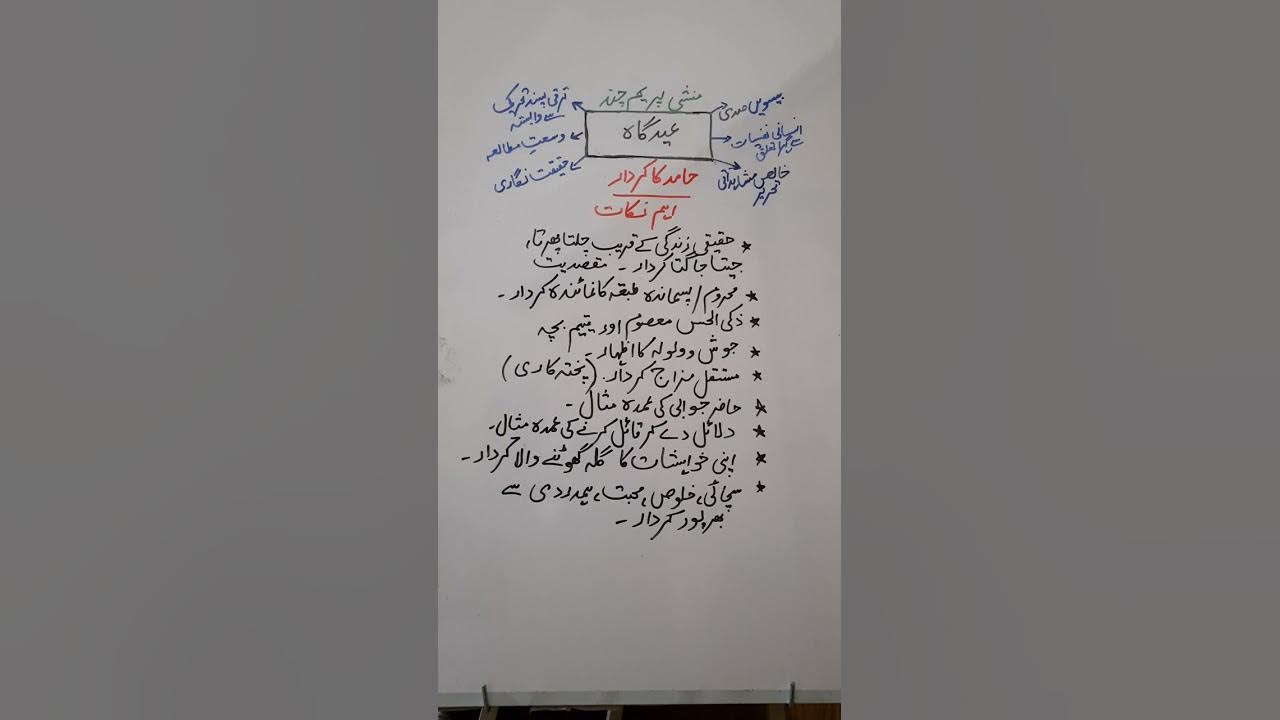 منشی پریم چند
عید گاہ
بیسویں صدی
انسانی نفسیات
سے گہرا تعلق
خالص مشاہداتی
تحریر
ترقی پسند تحریک
سے وابستہ
وسعتِ مطالعہ
حقیقت نگاری
حامد کا کردار
اہم نکات
٭ حقیقی زندگی کے قریب چلتا پھرتا،
جیتا جاگتا کردار ۔ مقصدیت
٭ محروم / پسماندہ طبقہ کا نمائندہ کردار ۔
٭ ذکی الحس معصوم اور یتیم بچہ
٭ جوش و ولولہ کا اظہار ۔
٭ مستقل مزاج کردار. (پختہ کاری)
٭ حاضر جوابی کی عمدہ مثال ۔
٭ دلائل دے کر قائل کرنے کی عمدہ مثال ۔
٭ اپنی خواہشات کا گلہ گھوٹنے والا کردار ۔
٭ سچائی، خلوص، محبت، ہمدردی سے
بھرپور کردار ۔